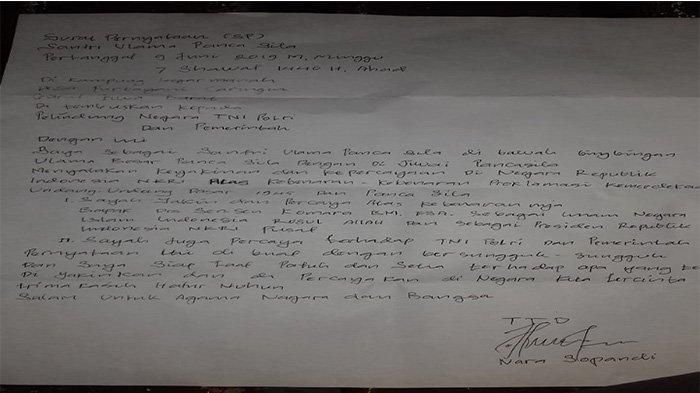 Surat Pernyataan (SP)
Santri Ulama Panca Sila
Pertanggal 9 Juni 2019 M, Minggu
7 Shawal 1440 H, Ahad
Di Kampung
Desa Purbayani Caringin
Garut Jawa Barat
Di tembuskan Kepada
Pelindung Negara TNI Polri
Dan Pemerintah
Dengan ini
Saya Sebagai Santri Ulama Panca Sila di bawah bingbingan
Ulama Besar Panca Sila Dengan Di Jiwai Pancasila
Menyatakan Keyakinan dan Kepercayaan Di Negara Republik
Indonesia NKRI Atas Kebenaran-Kebenaran Proklamasi Kemerdeka
Undang-Undang Dasar 1945 Dan Panca Sila
I. Sayah Yakin dan Percaya Atas Kebenaran nya
Bapak Drs Sensen Komara BM. ESA. Sebagai Imam Negara
Islam Indonesia Rosul Allah Dan Sebagai Presiden Republik
Indonesia NKRI Pusat
II. Sayah Juga Percaya terhadap TNI Polri Dan Pemerintah
Pernyataan ini di buat dengan bersungguh-sungguh
Dan Saya Siap Taat Patuh dan Setia terhadap apa yang
Di yakin Kan dan di Percaya Kan di Negara Kita tercinta
trima Kasih Hatur Nuhun
Salam Untuk Agama Nagara dan Bangsa
TTD
Nara Sopandi